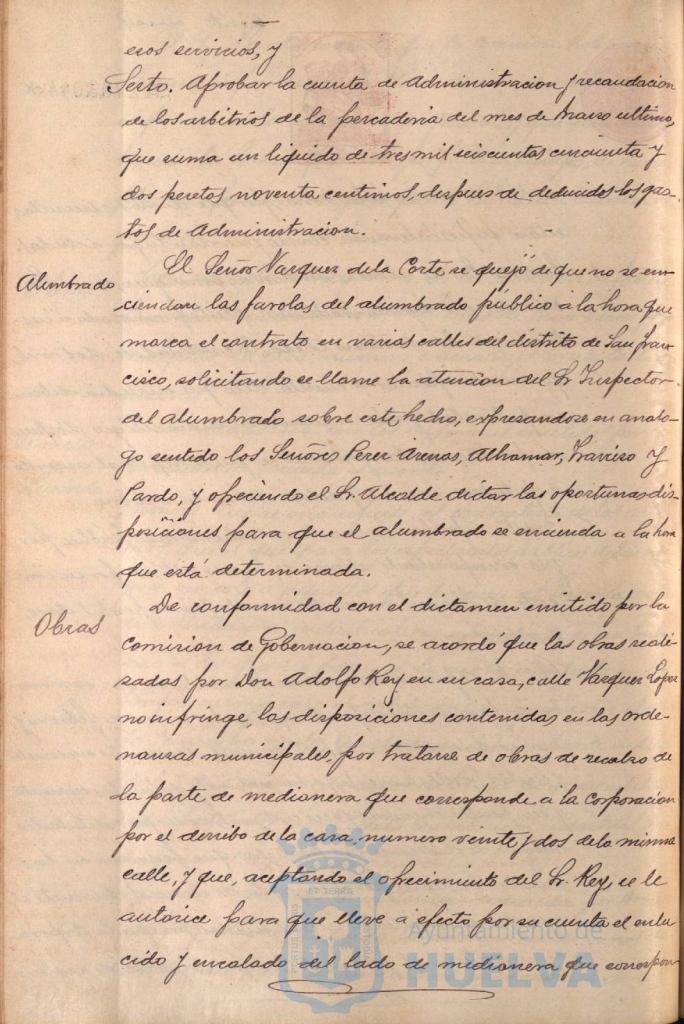 esos servicios, y
Sexto. Aprobar la cuenta de Administracion y recaudacion
de los arbitrios de la pescaderia del mes de Marzo ultimo,
que suma un liquido de tres mil seiscientas cincuenta y
dos pesetas noventa centimos, despues de deducidos los gas-
tos de Administracion.
Alumbrado
El Señor Vazquez de la Corte se quejó de que no se en-
ciendan las farolas del alumbrado público á la hora que
marca el contrato en varias calles del distrito de San Fran-
cisco, solicitando se llame la atencion del Sr Inspector
del alumbrado sobre este hecho, expresandose en analo-
go sentido los Señores Perez Arenas, Alhamar, Travieso y
Pardo, y ofreciendo el Sr. Alcalde dictar las oportunas dis-
posiciones para que el alumbrado se encienda a la hora
que está determinada.
Obras
De conformidad con el dictamen emitido por la
comision de Gobernacion, se acordó que las obras reali-
zadas por Don Adolfo Rey en su casa, calle Vazquez Lopez
no infringe, las disposiciones contenidas en las orde-
nanzas municipales, por tratarse de obras de recalzo de
la parte de medianera que corresponde á la corporacion
por el derribo de la casa, numero veinte y dos de la misma
calle, y que, aceptando el ofrecimiento del Sr. Rey, se le
autorice para que lleve á efecto por su cuenta el enlu-
cido y encalado del lado de medianera que correspon-
Ayuntamiento de
HUELVA